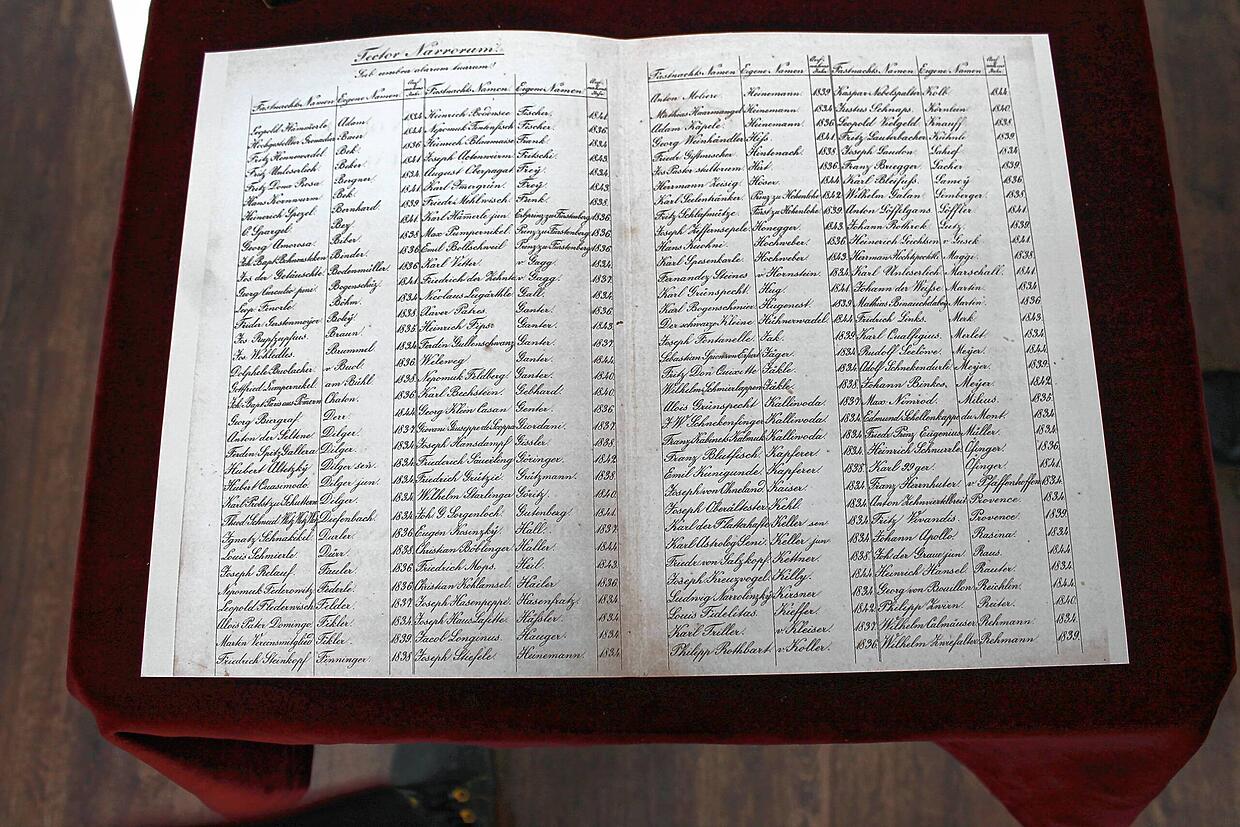 Tector Narrorum.
Sub umbra alarum tuarum!
Fastnachts Namen Eigene Namen Auf Jahr Fastnachts Namen Eigene Namen Auf Jahr
Leopold Hämmerle Adam. 1834 Heinrich Bodensee Fischer. 1841
Hochgesteller Bauer 1841 Nepomuk Fischer. 1836
Fritz Honorwadel Bek. 1836 Heinrich Blaumeise Frank. 1841
Fritz Malesorlich Beker. 1841 Joseph Actenwurm Fritschi. 1843
Fritz Dona Rosa Bergner. 1834 August Oberpagat Frey. 1841
Hans Kornwurm Bek. 1841 Karl Imergrün. Frey. 1843
Heinrich Spezel Bernhard. 1839 Friedr: Mehlwisch Frenk. 1838
C. Spargel Bey 1841 Karl Hämerle jun. Erbprinz zu Fürstenberg 1836
Georg Amorosa Biber 1838 Max Pumpernikel. Prinz zu Fürstenberg 1836
Binder. 1836 Emil Bollschweil Prinz zu Fürstenberg 1836
Jos der Getäuschte Bodenmüller. 1836 Karl Vetter. v. Gagg. 1834
Bogenschüz 1841 Friedrich der Zehnte v. Gagg. 1837
Leop. Finerle Böhm. 1834 Nicolaus Lugärthle Gall. 1834
Boky 1838 Xaver Patres. Ganter. 1836
Braun. 1835 Heinrich Fips Ganter. 1843
Jos. Wekledles. Brummel 1834 Ferdin: Gullenschwanz Ganter. 1837
v. Buol. 1836 Weleweg Ganter. 1844
Gottfried Numpernikel am Bühl. 1838 Nepomuk Feldberg. Ganter. 1840
Chaton. 1834 Karl Bechstein Gebhard. 1840
Georg Burgraf Derr. 1844 Georg Klein Casan Genter. 1836
Anton der Seltene Dilger. 1837 Giordani. 1837
Dilger. 1834 Joseph Hansdampf Gissler. 1838
Hubert Alletzky Dilger sen. 1834 Friederich Säuerling Göringer. 1842
Hubert Quasimodo. Dilger jun. 1834 Friedrich Grützie Grützmann. 1838
Dilger. 1834 Wilhelm Starlinger Göritz. 1840
Diefenbach. 1834 Joh: G. Sorgenloch. Gutenberg. 1841
Ignatz Schnakekel. Durler. 1836 Eugen Rosinzky. Häll. 1837
Louis Schmierle. Dürr. 1838 Christian Böblinger Haller. 1844
Joseph Relauf. Fauler. 1836 Friedrich Mops. Heil. 1843
Nepomuk Federowitz Federle. 1836 Christian Kohlamsel Haüler 1836
Leopold Federnwisch Felder. 1837 Joseph Hasenpeppe Hasenfratz. 1834
Alois Peter Domingo. Fikler. 1834 Joseph Haus Lafitte. Häfsler. 1834
Martin Vereinsmitglied Fikler. 1839 Jacob Longinus. Hauger. 1834
Friedrich Steinkopf Finninger. 1838 Joseph Stiefele. Heinemann. 1834
Fastnachts Namen Eigene Namen Auf Jahr Fastnachts Namen Eigene Namen Auf Jahr
Anton Meliere Heinemann. 1839 Kaspar Nebelspalter Kolb. 1844
Mathias Haarmangel Heinemann 1834 Justus Schnaps. Körnlein. 1840
Adam Käpele. Heinemann. 1836 Leopold Kelgeld Knauff 1838
Georg Weinhändler Hifs 1841 Fritz Lauterbacher Kühnle 1839
Friedr: Giftmischer Hintenach. 1838 Joseph Laudon. Lahief 1834
Jos Pastor stultorum. Hirt. 1836 Franz Bruegger Lacher 1839
Herrmann Zeisig. Höser. 1844 Karl Bleifufs. Lamey 1836
Karl Seelenhänker. Prinz zu Hohenlohe 1842 Wilhelm Galan. Lemberger 1838
Fritz Schlafmütze. Fürst zu Hohenlohe 1839 Anton Löffelgans Löffler 1841
Joseph Zeffansepele. Honegger. 1843 Johann Rothrok Lutz. 1839
Hans Kuchni Hochweber 1836 Heinerich Leichtsin v. Lisek 1841
Karl Spasenkarle. Hochweber. 1843 Herman Hochtpoetk. Mayje. 1838
Fernandez Steines v. Hornstein. 1834 Karl Unloserlich v. Marschall. 1841
Karl Grünspecht Hug. 1841 Johann der Weiße Martin. 1834
Karl Bogenschmier Hugenest. 1839 Mathias Martin. 1836
Der schwarze Kleine Hühnerwadel. 1844 Fridrich Links. Merk 1843
Joseph Fontanelle Jak. 1839 Karl Qualfigius. Merlet 1834
Sebastian Jäger. 1834 Rudolf Seelöve Meijer. 1844
Fritz Don Quixotte Jäkle. 1834 Adolf Schnekendurle Meyer. 1839
Wilhelm Schmierlappen Jäkle. 1838 Johann Benkes. Meyer. 1842
Alois Grünspecht Kallivoda 1837 Max Nimrod. Milius. 1835
J. W. Schnekenfinger Kallivoda 1834 Edmund Schellenkappe du Mont. 1834
Kallivoda. 1834 Friedr: Prinz Eugenius Müller. 1834
Franz Blutfisch. Kapferer 1834 Heinrich Schnurrle Ofinger. 1836
Emil Kunigunde. Kapferer. 1838 Karl 99 ger. Ofinger. 1841
Joseph von Ohneland Kaiser. 1834 Franz Herrnhuter v. Pfaffenhoffen 1834
Joseph Oberältester Kehl. 1834 Anton Provence. 1834
Karl der Flatterhafte Keller sen. 1834 Fritz Vivandis. Provence 1839
Karl Astrolog Leni. Keller jun 1834 Johann Apollo Rasina. 1834
Friedr: von Salzkopf. Kettner. 1838 Joh: der Graue jun. Raus. 1844
Joseph Kreuzvogel. Killy. 1844 Heinrich Hansel. Rauter. 1834
Ludwig Narrolinzky Kirsner 1834 Georg von Bouillon Reichlin. 1844
Louis Fidelitas. Kieffer. 1842 Philipp Zwirn. Reiter. 1840
Karl Triller. v. Kleiser. 1837 Wilhelm Calmäuser Rehmann. 1834
Philipp Rothbart v. Koller. 1836 Wilhelm Zwiefalter Rehmann 1839